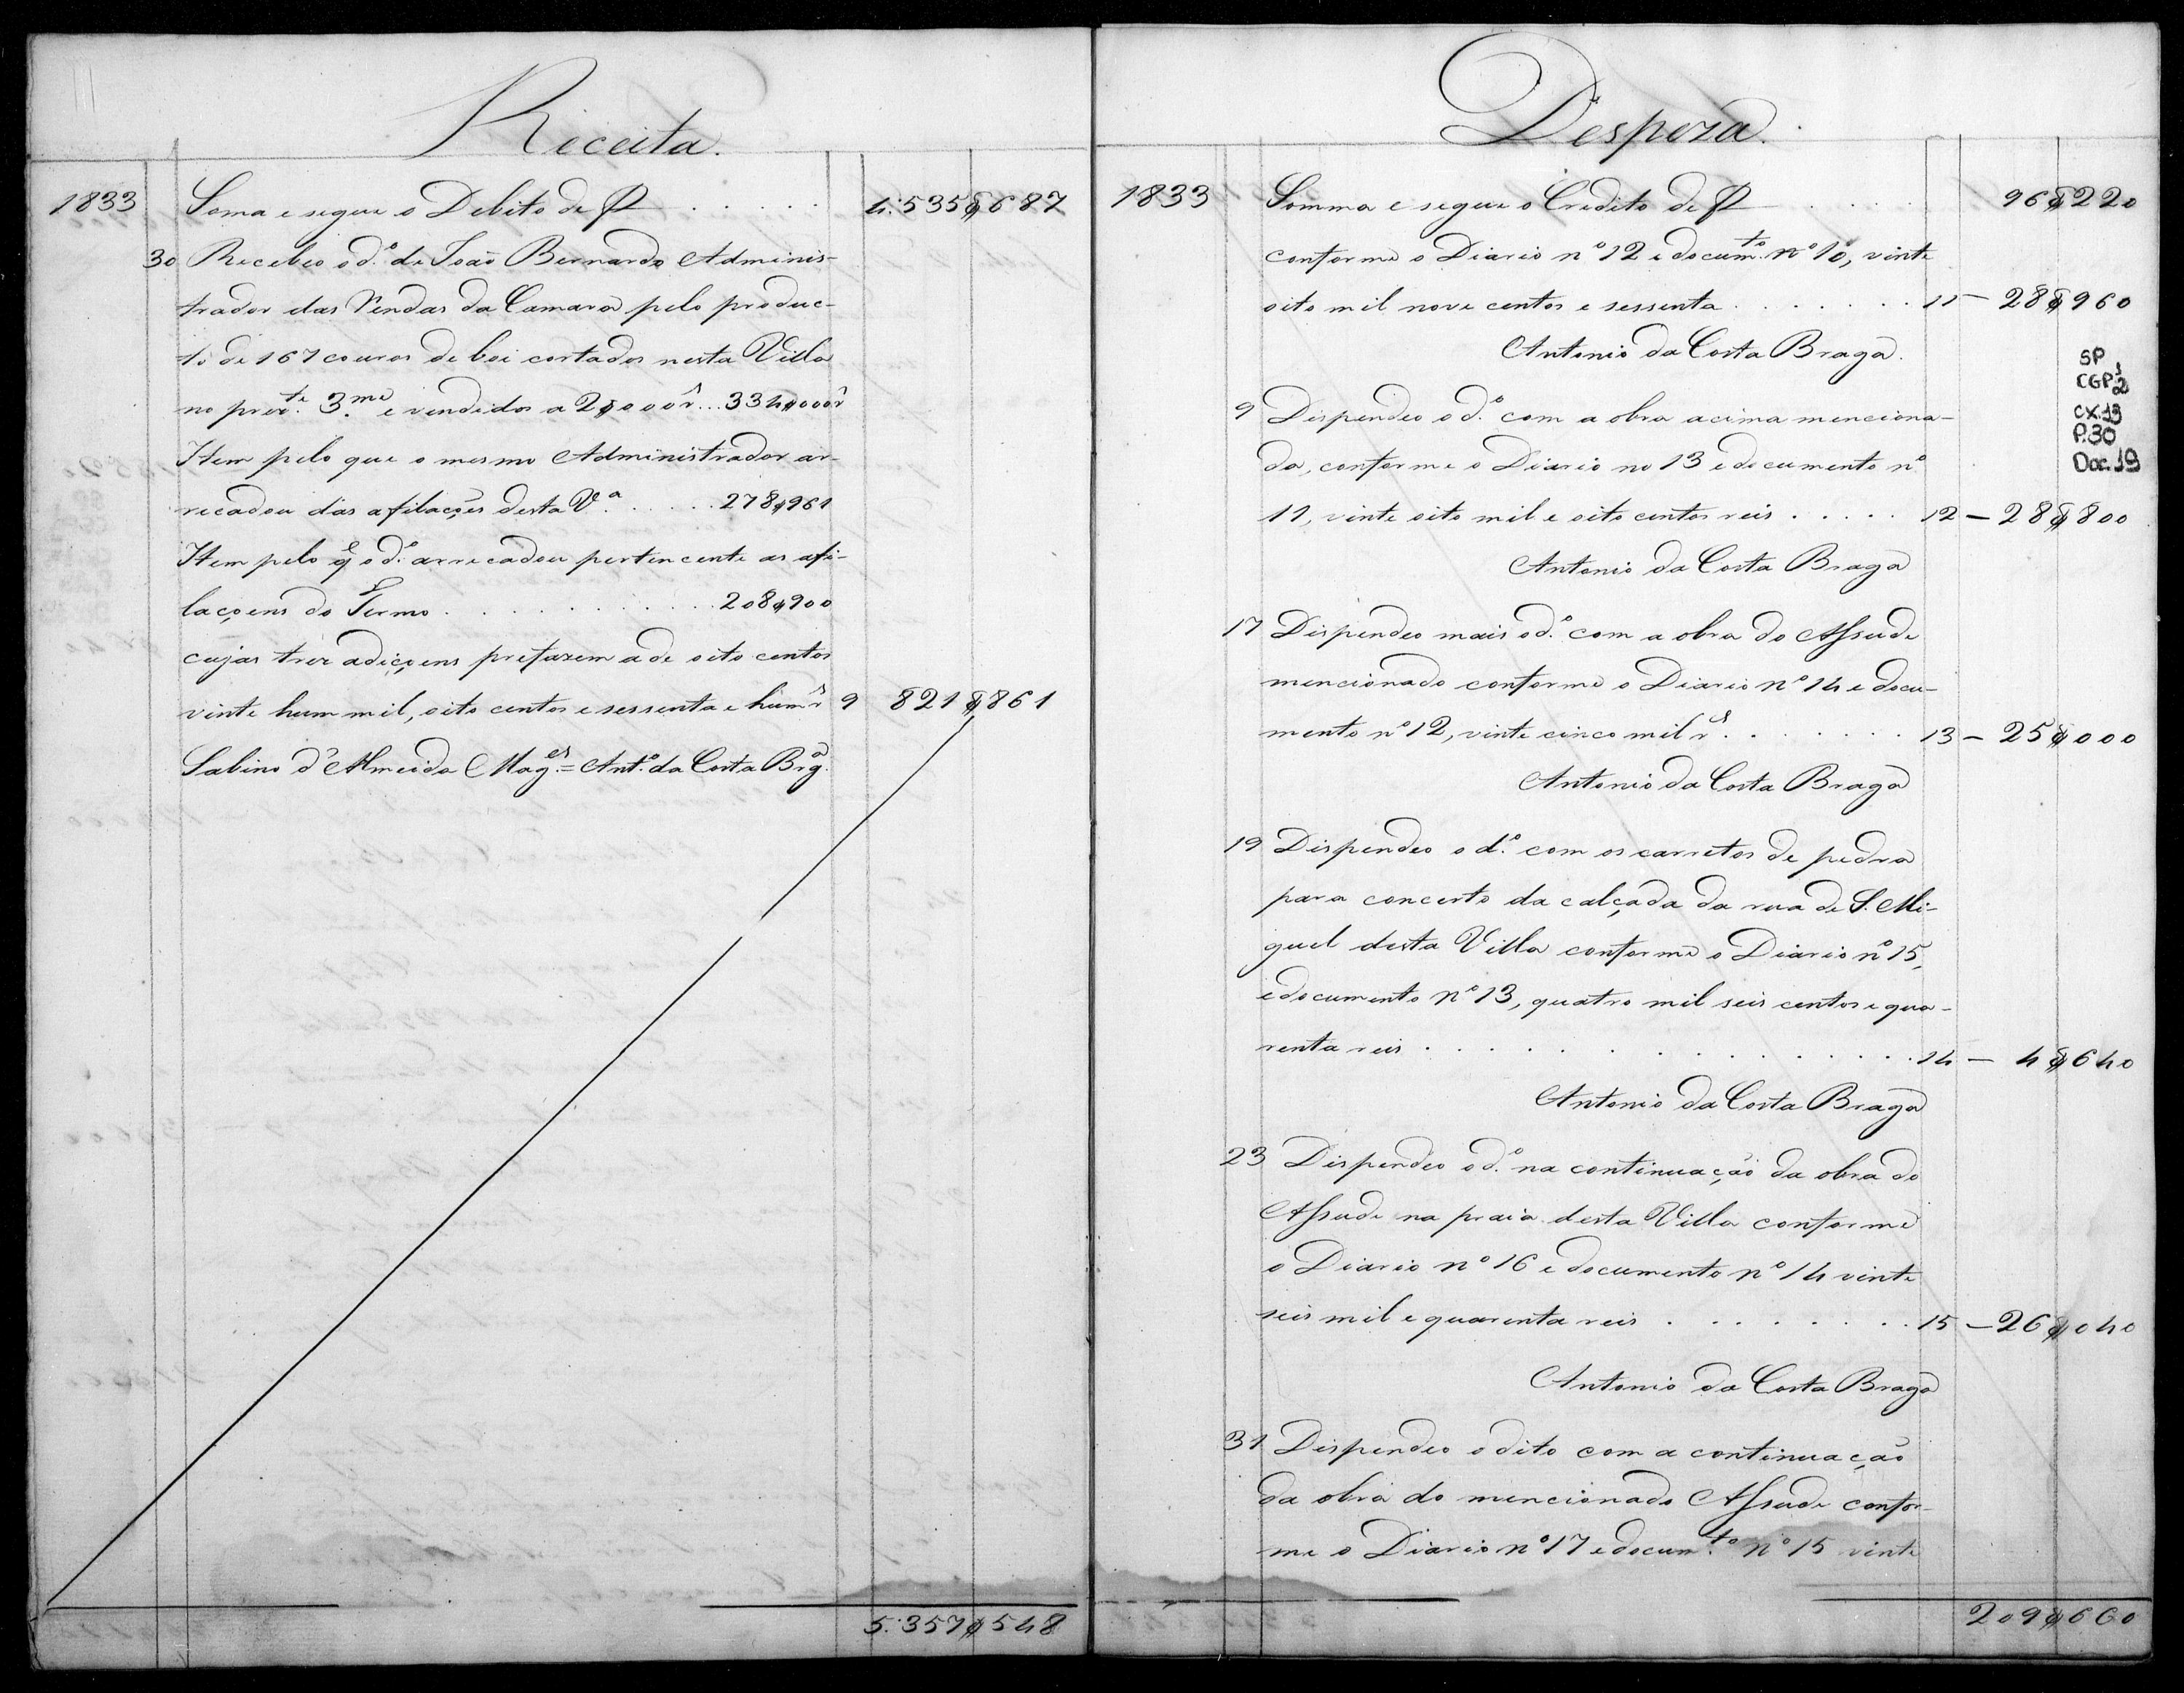 Receita.
1833 Soma e segue o Debito de R . . . . . 4:535$687
30 Recebeo o d.º de João Bernardo Adminis-
trador das Rendas da Camara pelo produc-
to de 167 couros de boi cortados nesta Villa
no prez.te 3.me e vendidos a 2$000 r.s... 334$000 r.s
Item pelo que o mesmo Administrador ar-
recadou das afilações desta V.ª . . . . . 278$961
Item pelo q̃ o d.º arrecadou pertencente as afi-
laçoens do Termo . . . . . . . . . . 208$900
cujas trez adiçoens prefazem a de oito centos
vinte hum mil, oito centos e sessenta e hum r.s 9 821$861
Sabino d'Almeida Mag.es = Ant.º da Costa Brg.ª
5:357$548
Despeza.
1833 Somma e segue o Credito de R . . . . 96$220
conforme o Diario nº 12 e docum.to nº 10, vinte
oito mil nove centos e sessenta . . . . . . . 11 - 28$960
Antonio da Costa Braga.
9 Dispendeo o d.º com a obra acima menciona-
da, conforme o Diario no 13 e documento nº
11, vinte oito mil e oito centos reis . . . . . 12 - 28$800
Antonio da Costa Braga
17 Dispendeo mais o d.º com a obra do Assude
mencionado conforme o Diario nº 14 e docu-
mento nº 12, vinte cinco mil r.s . . . . . . . 13 - 25$000
Antonio da Costa Braga
19 Dispendeo o d.º com os carretos de pedra
para concerto da calçada da rua de S. Mi-
guel desta Villa conforme o Diario nº 15,
e documento nº 13, quatro mil seis centos e qua-
renta reis . . . . . . . . . . . . . 14 - 4$640
Antonio da Costa Braga
23 Dispendeo o d.º na continuação da obra do
Assude na praia desta Villa conforme
o Diario nº 16 e documento nº 14 vinte
seis mil e quarenta reis . . . . . . . . 15 - 26$040
Antonio da Costa Braga
31 Dispendeo o dito com a continuação
da obra do mencionado Assude confor-
me o Diario nº 17 e docum.to nº 15 vinte
209$660
SP
CGP1.2
CX.13
P.30
Doc.19